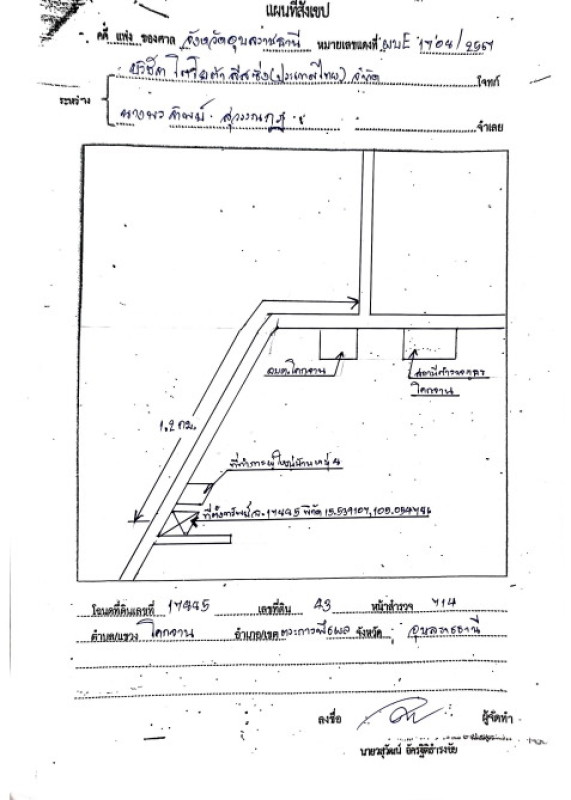 แผนที่สังเขป
คดี แพ่ง ของศาล จังหวัดอุบลราชธานี หมายเลขแดงที่ ผบE 1704/2567
บริษัท โตโยต้า ลีสซิ่ง (ประเทศไทย) จำกัด โจทก์
ระหว่าง
นางพรลำพมพ์ จำเลย
อบต.โคกจาน
สถานีตำรวจภูธร
โคกจาน
1.2 กม.
ที่ทำการผู้ใหญ่บ้าน หมู่ 4
ที่ตั้งทรัพย์ ฉ.17445 พิกัด 15.539107,105.054746
โฉนดที่ดินเลขที่ 17445 เลขที่ดิน 43 หน้าสำรวจ 714
ตำบล/แขวง โคกจาน อำเภอ/เขต ตระการพืชผล จังหวัด อุบลราชธานี
ลงชื่อ ผู้จัดทำ
นายวสุวัฒน์ อัครฐิติธำรงชัย